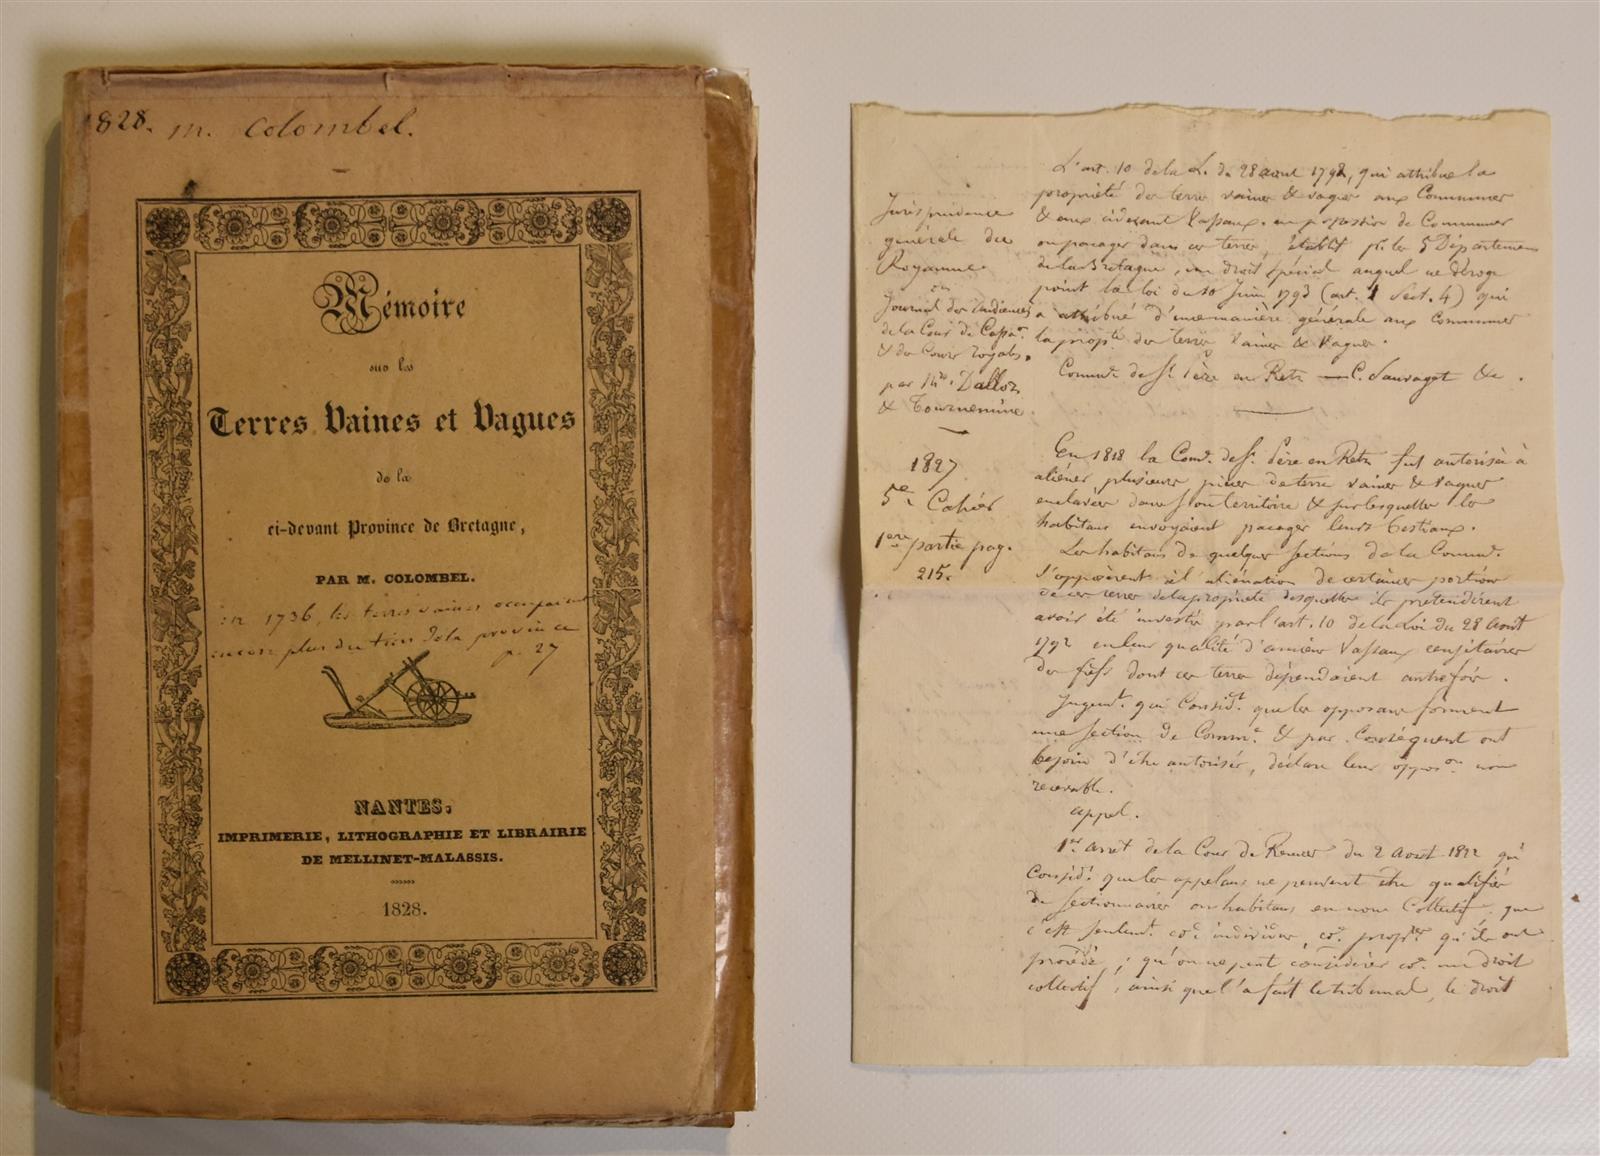 1828. m. Colombel.
Mémoire
sur les
Terres Vaines et Vagues
de la
ci-devant Province de Bretagne,
PAR M. COLOMBEL.
en 1736, les terres vaines occupaient
encore plus du tiers de la province
p. 27
NANTES,
IMPRIMERIE, LITHOGRAPHIE ET LIBRAIRIE
DE MELLINET-MALASSIS.
1828.
Jurisprudence
générale du
Royaume
ou
Journal des Audiences
de la Cour de Cassaon
& des Cours royales,
par Mrs. Dalloz
& Tournemine.
1827
5e. Cahier
1ere partie pag.
215.
L'art. 10 de la L. du 28 aout 1792, qui attribue la
propriété des terres vaines & vagues aux Communes
& aux cidevant Vassaux en possession de Communer
ou pacager dans ces terres, établit pr. les 5 Départemens
de la Bretagne, un droit spécial auquel ne déroge
point la loi du 10 Juin 1793 (art. 1 Sect. 4) qui
a attribué d'une manière générale aux Communes
la propté des terres Vaines & Vagues.
Commne de St. Père en Retz — C. Sauvaget &c.
En 1818 la Comne. de St. Père en Retz fut autorisée à
aliéner plusieurs pièces de terre vaines & vagues
enclavées dans son territoire & sur lesquelles les
habitans envoyaient pacager leurs bestiaux.
Les habitans de quelques sections de la Commne.
s'opposèrent à l'aliénation de certaines portions
de ces terres de la propriété desquelles ils prétendirent
avoir été investis par l'art. 10 de la Loi du 28 Août
1792 en leur qualité d'anciens Vassaux censitaires
des fiefs dont ces terres dépendaient autrefois.
Jugemt. qui Considt. que les opposans forment
une section de Comme & par Conséquent ont
besoin d'être autorisés, déclare leur opposon non
recevable.
appel.
1er. arrêt de la Cour de Rennes du 2 Aout 1822 qui
Considt. que les appelans ne peuvent être qualifiés
de sectionnaires ou habitans en nom Collectif, que
c'est seulemt. coe individus, coe. proprres qu'ils ont
procédé; qu'on ne peut considérer coe. un droit
collectif, ainsi que l'a fait le tribunal, le droit